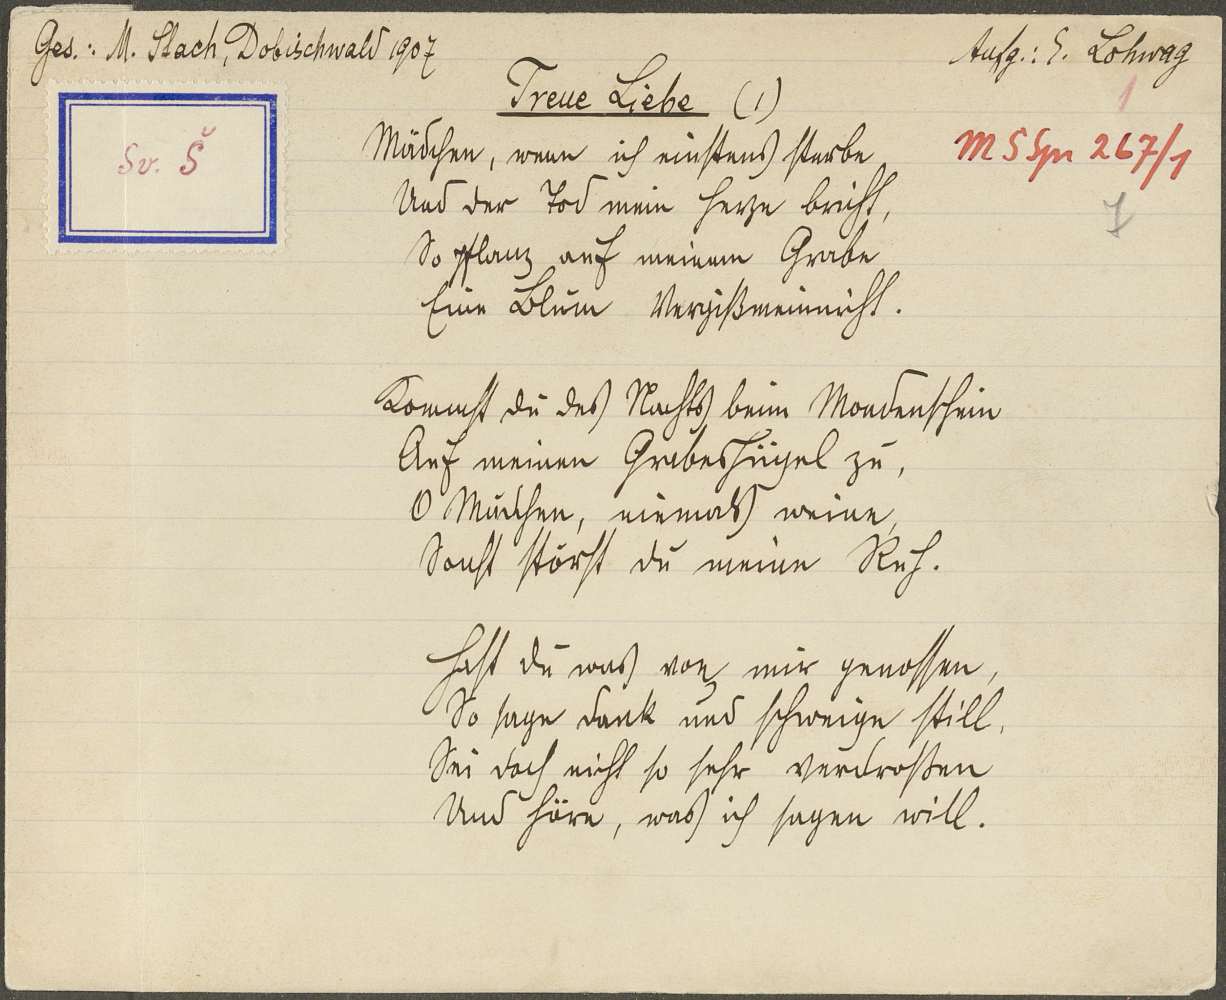 Ges.: M. Stach, Dobischwald 1907
Aufg.: E. Lohwag
Treue Liebe (1)
1
Sv. Š
MS Spr 267/1
7
Mädchen, wenn ich einstens sterbe
Und der Tod mein Herze bricht,
So pflanz auf meinem Grabe
Eine Blum Vergißmeinnicht.
Kommst du des Nachts beim Mondenschein
Auf meinen Grabeshügel zu,
O Mädchen, niemals weine,
Sonst störst du meine Ruh.
Hast du was von mir genossen,
So sage dank und schweige still.
Sei doch nicht so sehr verdroßen
Und höre, was ich sagen will.